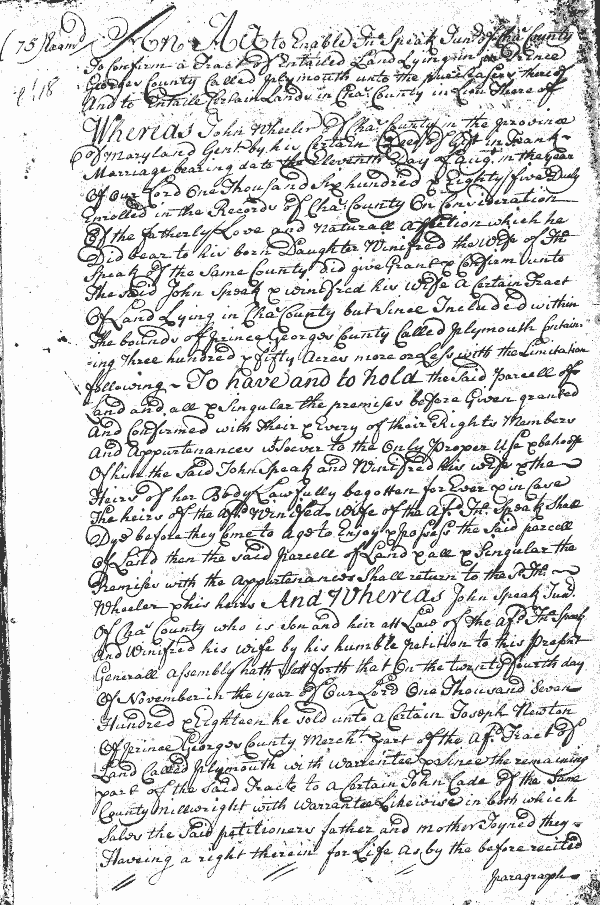 (75) Read
p: 118
An Act to Enable Jn:o Speak Jun:r of Cha:s County
To Confirm a Tract of Entailed Land Lying in Prince
Georges County Called Plymouth unto the purchasers thereof
And to Entaile Certain Lands in Cha:s County in Lieu There of
Whereas John Wheeler of Cha:s County in the province
of Maryland Gent by his Certain Deed of Gift in Frank-
Marriage bearing date the Eleventh Day of Aug: in the year
Of Our Lord One Thousand Six hundred & Eighty five Duly
Enrolled in the Records of Cha:s County On Consideration
Of the fatherly Love and Naturall Affection which he
Did bear to his born Daughter Winifred the Wife of Jn:o
Speak of the Same County did give Grant & Confirm unto
The said John Speak & Winifred his Wife A Certain Tract
Of Land Lying in Cha:s County but Since Included within
The bounds of Prince Georges County Called Plymouth Contain-
ing Three hundred & fifty Acres more or Less with the Limitation
following - To have and to hold the said Parcell of
Land and all & Singular the premises before Given granted
And Confirmed with their & Every of their Rights Members
And Appurtenances w:tsoever to the Only Proper Use & behoof
Of him the said John Speak and Winifred his wife & the
Heirs of her Body Lawfully begotten for Ever & in Case
The heirs of the Af:d Winifred wife of the Af:d Jn:o Speak Shall
Dye before they Come to Age to Enjoy & Possess the said parcell
Of Land then the said parcell of Land & all & Singular the
Premises with the Appurtenances Shall return to the s:d Jn:o
Wheeler & his heirs And Whereas John Speak Jun:r
Of Cha:s County who is Son and heir att Law of the Af:d Jn:o Speak
And Winifred his wife by his humble petition to this Present
Generall Assembly hath Sett forth that On the twenty fourth day
Of November in the year of Our Lord One Thousand Seven
Hundred & Eighteen he sold unto a Certain Joseph Newton
Of Prince Georges County Merch:t part of the Af:d Tract of
Land Called Plymouth with Warrentee & Since the remaining
part of the said Tract to a Certain John Cade of the Same
County millwright with Warrentee Likewise in both which
Sales the Said petitioners father and mother Joyned they
Haveing a right therein for Life As by the before recited
paragraph